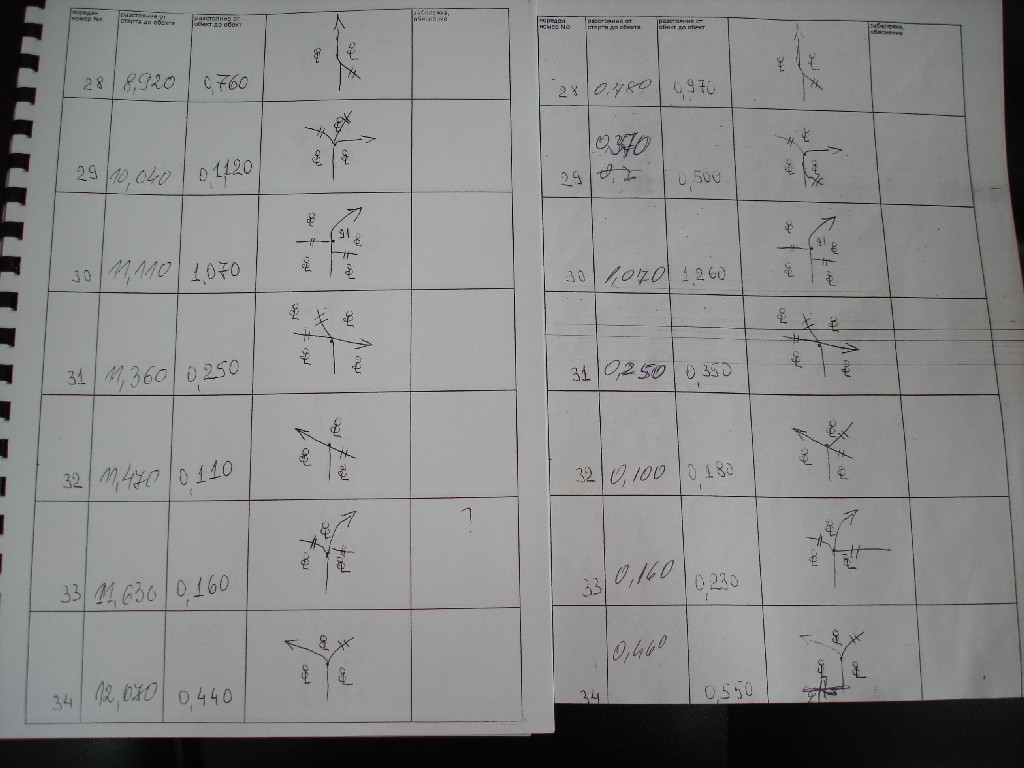 пореден номер No разстояние от старта до обекта разстояние от обект до обект забележка, обяснение
28 8,920 0,760
29 10,040 0,1120
30 11,110 1,070
91
31 11,360 0,250
32 11,470 0,110
33 11,630 0,160 ?
34 12,070 0,440
пореден номер No разстояние от старта до обекта разстояние от обект до обект забележка, обяснение
28 0,480 0,970
29 0,370 0,500
30 1,070 1,260
91
31 0,250 0,350
32 0,100 0,180
33 0,160 0,230
34 0,460 0,550